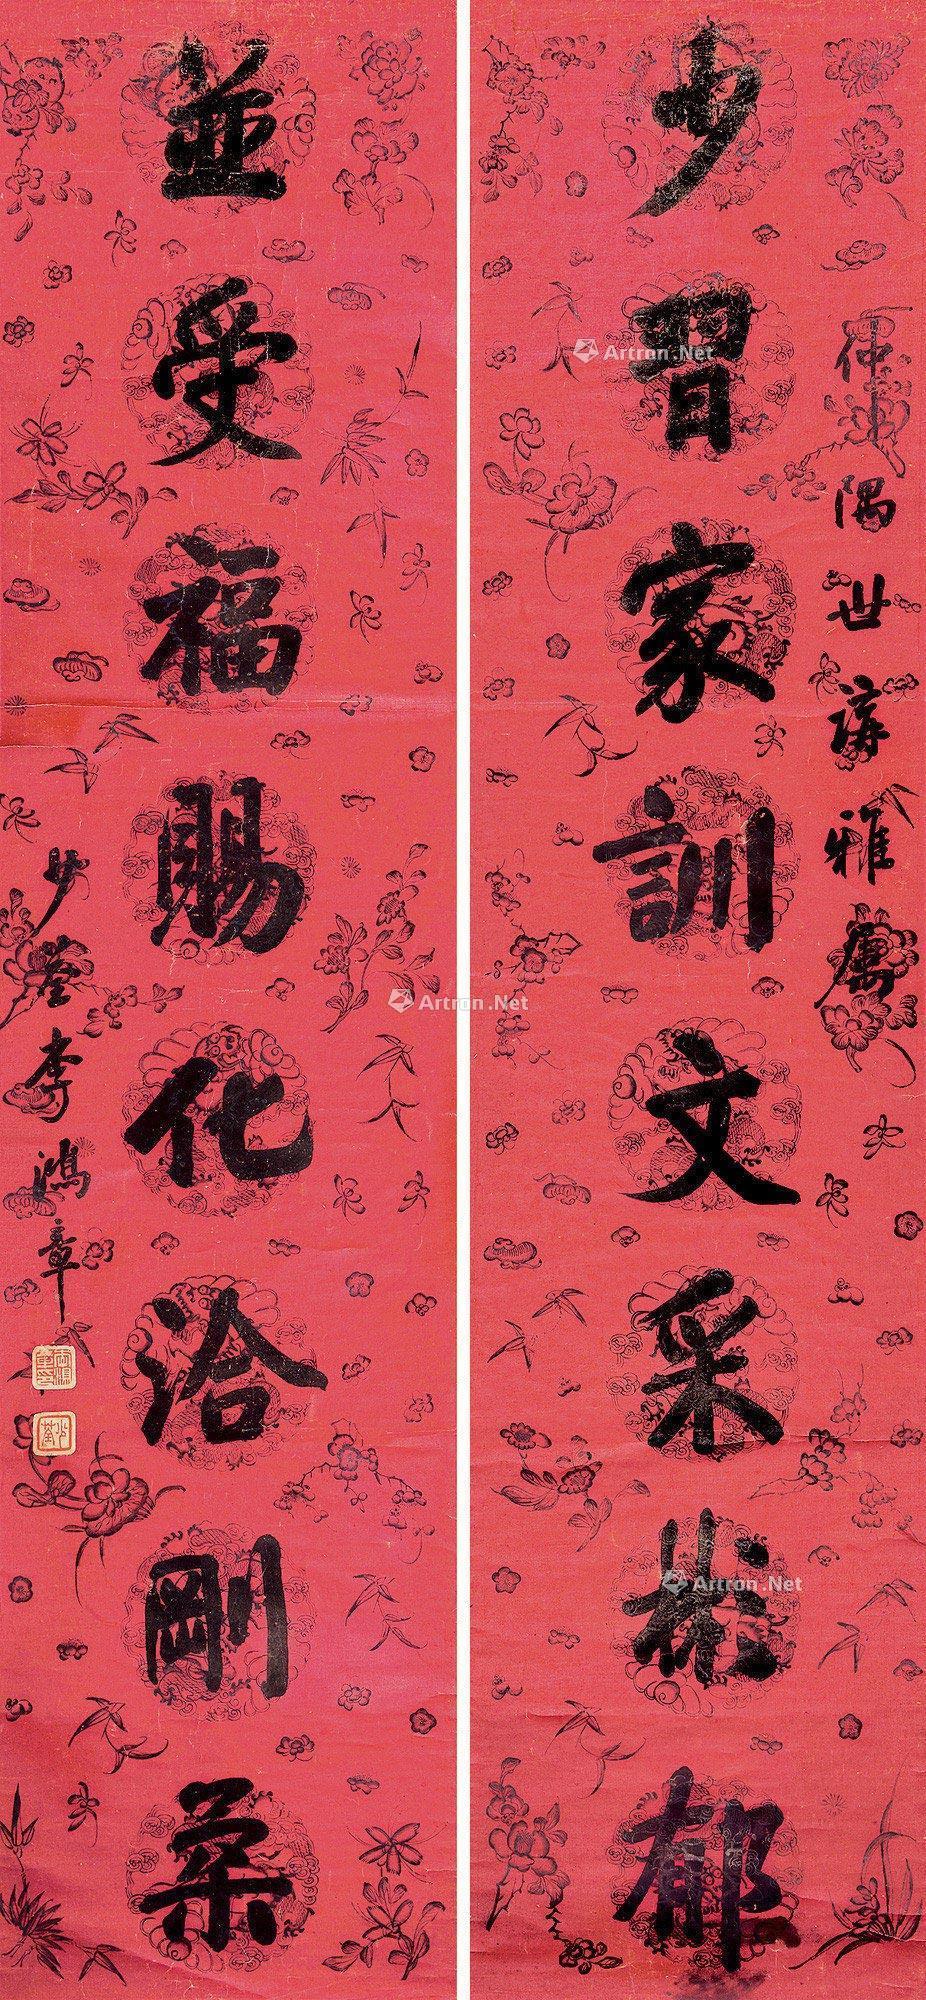 少習家訓文采彬郁
仲隅世講雅屬
並受福賜化洽剛柔
少荃李鴻章
Artron.Net
Artron.Net
Artron.Net
Artron.Net